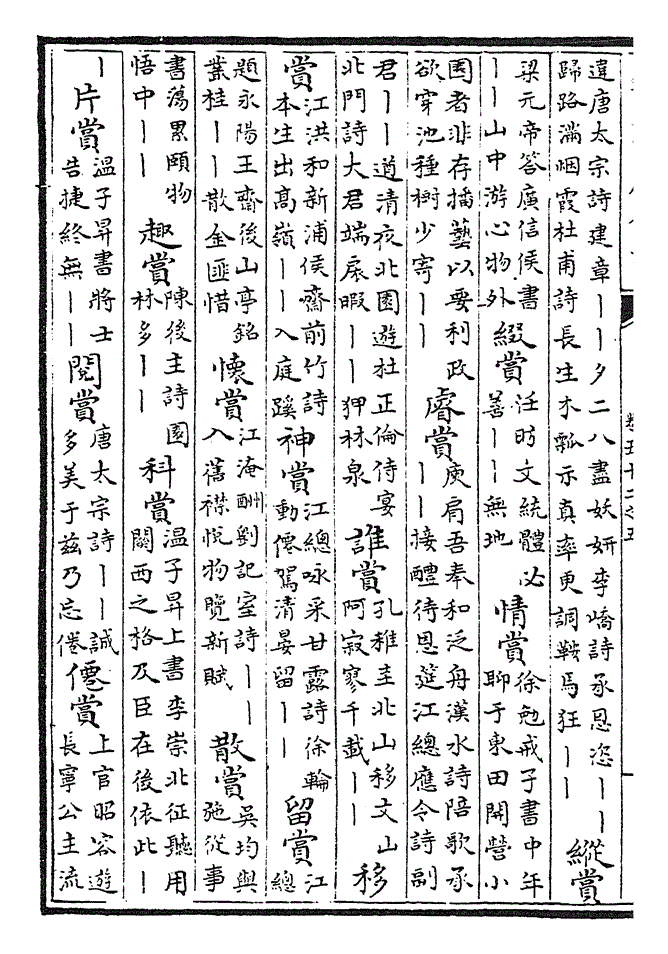 違唐太宗詩建章丨丨夕二八盡妖妍李嶠詩承恩恣丨丨
歸路滿烟霞杜甫詩長生木瓢示真率更調鞍馬狂丨丨
縱賞
梁元帝答廣信侯書
丨丨山中游心物外
綴賞
任昉文統體必
善丨丨無地
情賞
徐勉戒子書中年
聊于東田開營小
園者非存播藝以要利政
欲穿池種樹少寄丨丨
睿賞
庾肩吾奉和泛舟漢水詩陪歌承
丨丨接醴待恩筵江總應令詩副
君丨丨遒清夜北園遊杜正倫侍宴
北門詩大君端扆暇丨丨狎林泉
誰賞
孔稚圭北山移文山
阿寂寥千載丨丨
移
賞
江洪和新浦侯齋前竹詩
本生出高嶺丨丨入庭蹊
神賞
江總咏采甘露詩徐輪
動僊駕清晏留丨丨
留賞
江
總
題永陽王齋後山亭銘
業桂丨丨散金匪惜
懷賞
江淹酬劉記室詩丨丨
入舊襟悅物覽新賦
散賞
吳均與
施從事
書蕩累頤物
悟中丨丨
趣賞
陳後主詩園
林多丨丨
科賞
温子昇上書李崇北征聽用
關西之格及臣在後依此丨
丨
片賞
温子昇書將士
告捷終無丨丨
閱賞
唐太宗詩丨丨誠
多美于兹乃忘倦
僊賞
上官昭容遊
長寧公主流
卷五十二之五